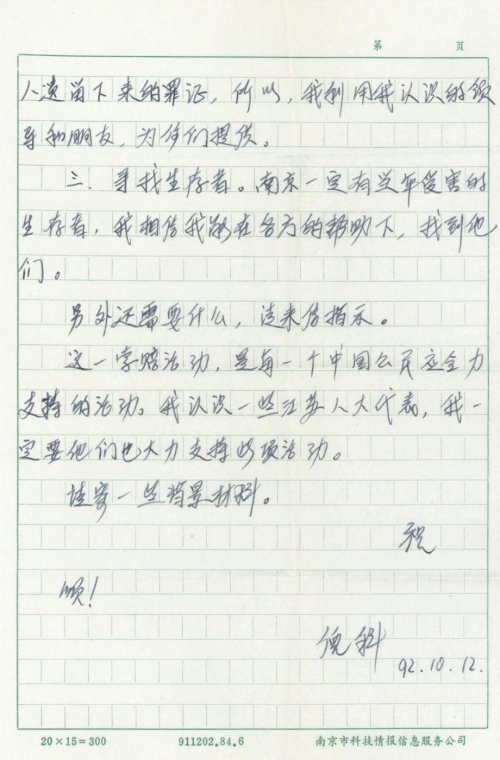 第　　页
人遗留下来的罪证，所以，我利用我认识的领
导和朋友，为你们提供。
三．寻找生存者。南京一定有当年受害的
生存者，我相信我能在各方的帮助下，找到他
们。
另外还需要什么，请来信指示。
这一索赔活动，是每一个中国公民应全力
支持的活动。我认识一些江苏人大代表，我一
定要他们也大力支持此项活动。
请寄一些背景材料。
祝
顺！
92.10.12.
20×15=300
911202.84.6
南京市科技情报信息服务公司